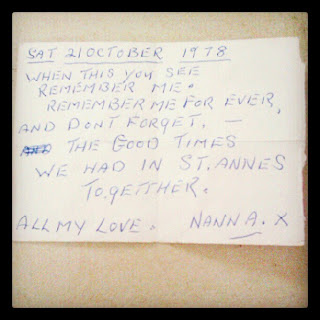 SAT 21 OCTOBER 1978
WHEN THIS YOU SEE
REMEMBER ME.
REMEMBER ME FOR EVER,
AND DONT FORGET. —
THE GOOD TIMES
WE HAD IN ST. ANNES
TOGEITHER.
ALL MY LOVE. NANNA. X